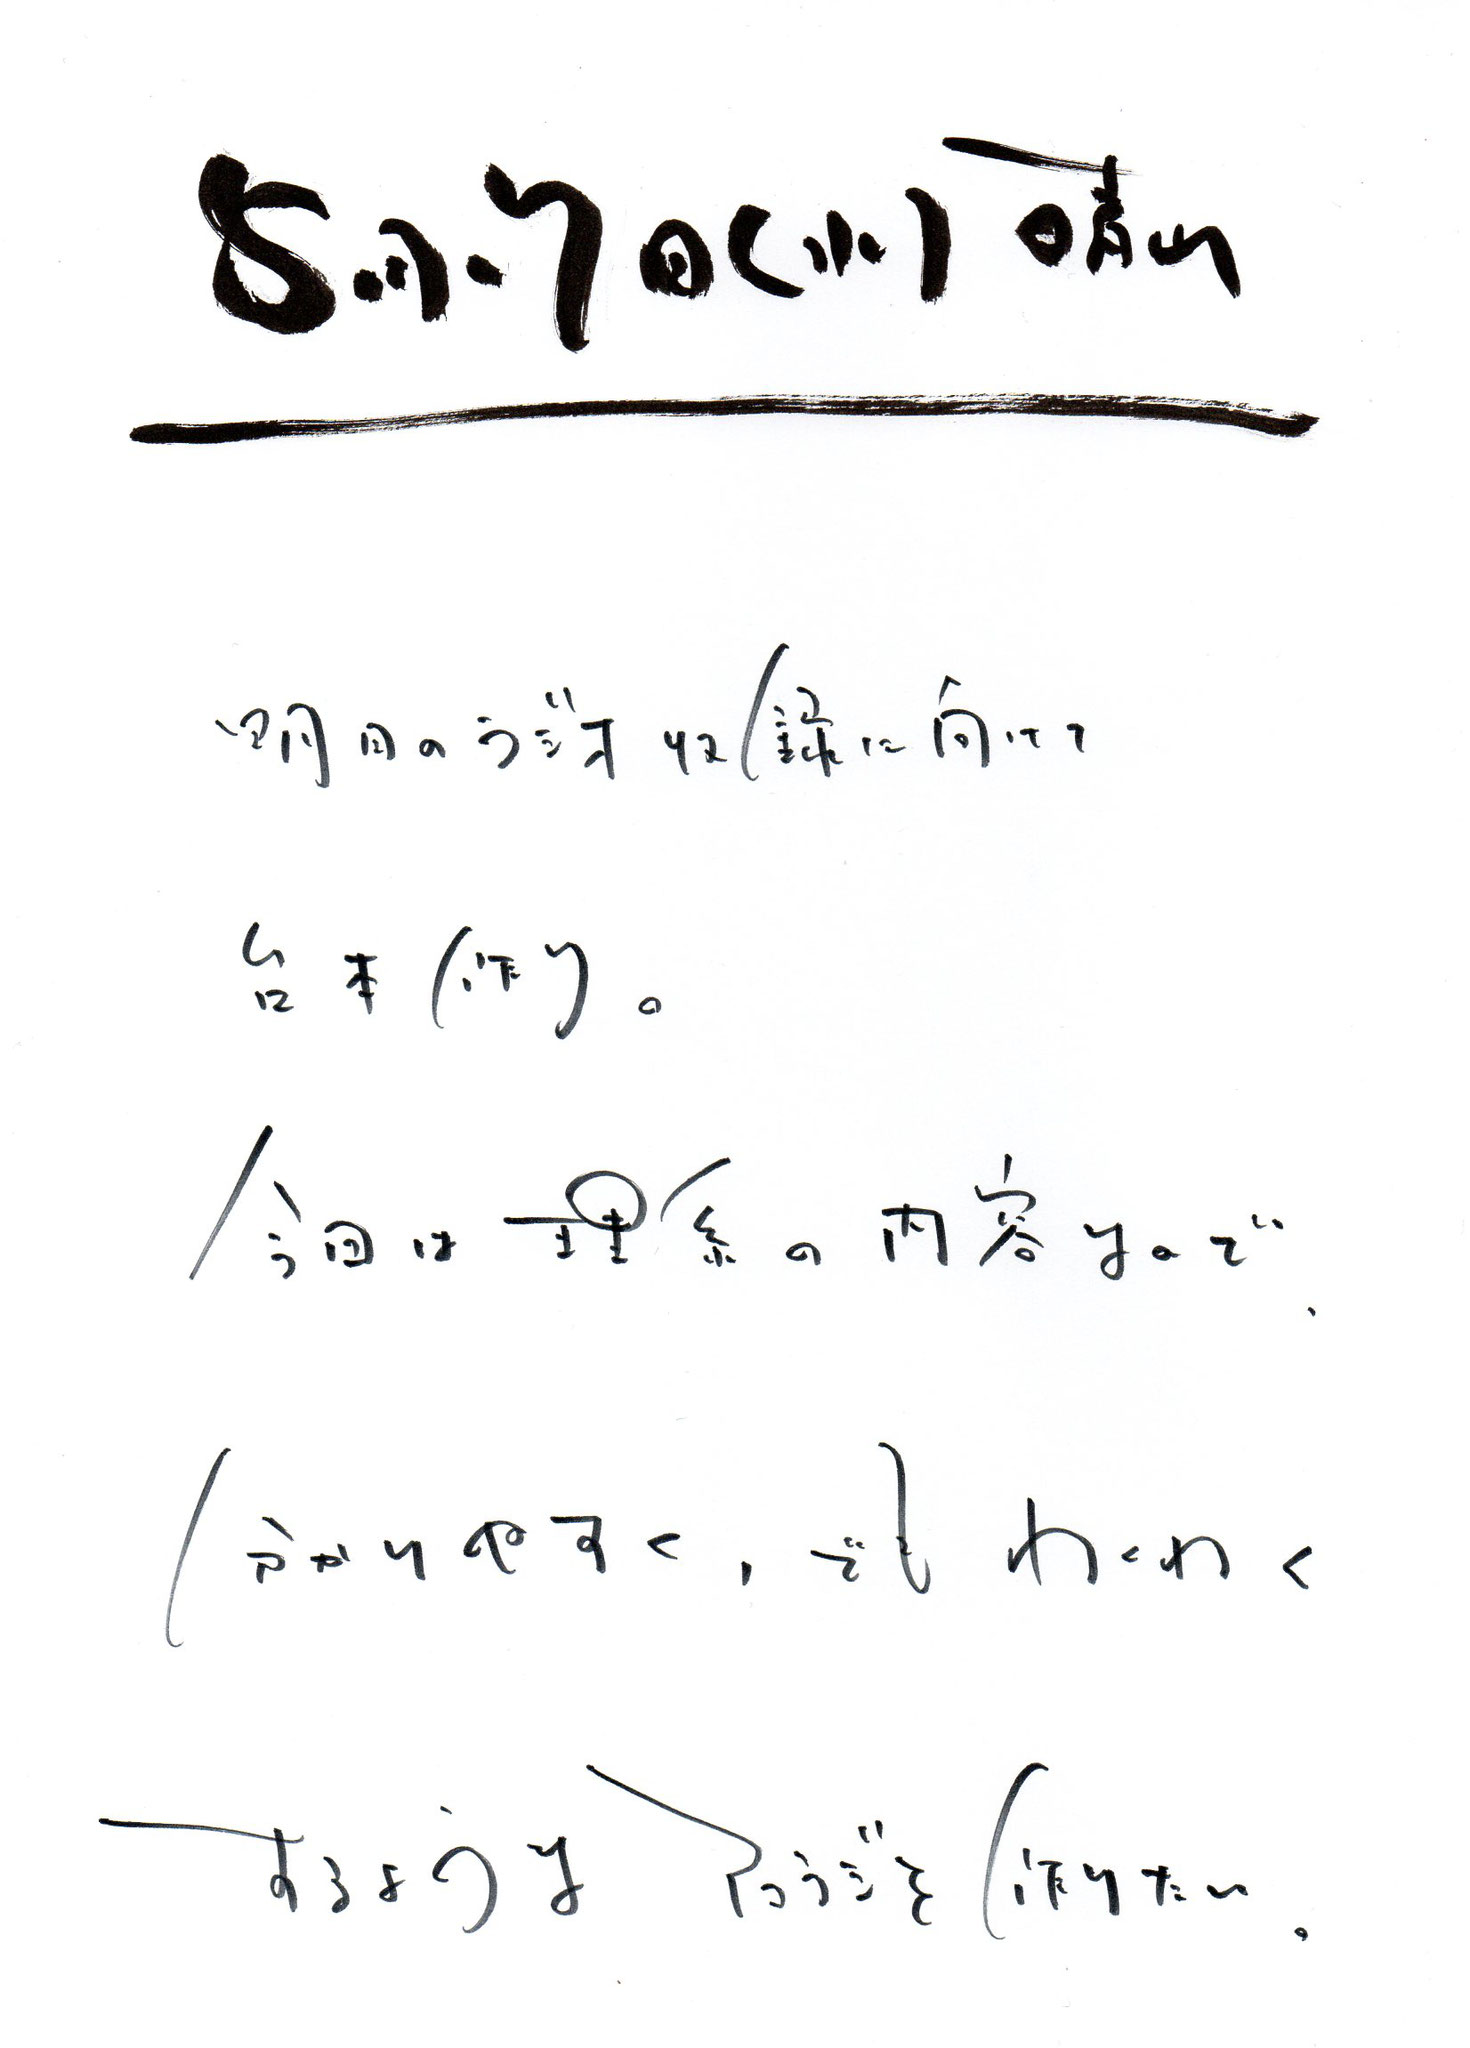 5月7日(水)晴れ
明日のラジオ収録に向けて
台本作り。
今回は理系の内容なので、
分かりやすく、でもわくわく
するようなラジを作りたい。